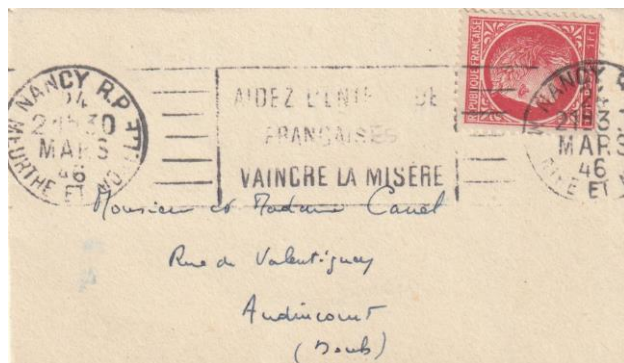 NANCY R.P.
24
21H30
MARS
46
MEURTHE ET MOSELLE
AIDEZ L'ENTR DE
FRANÇAISES
VAINCRE LA MISÈRE
REPUBLIQUE FRANÇAISE
NANCY R
MARS
46
ET
Monsieur et Madame Canel
Rue de Valentigney
Audincourt
(Doubs)